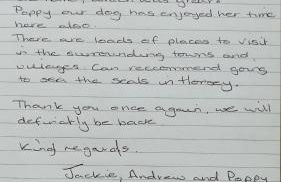 Poppy our dog has enjoyed her time
here also.
There are loads of places to visit
in the surrounding towns and
villages. Can reccommend going
to see the seals in Horsey.
Thank you once again, we will
definitely be back
Kind regards.
Jackie, Andrew and Poppy